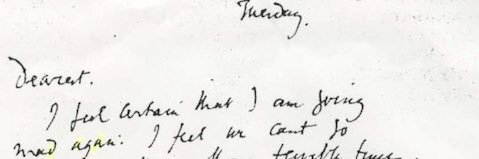 Tuesday.
Dearest.
I feel certain that I am going
mad again: I feel we cant go
terrible times.